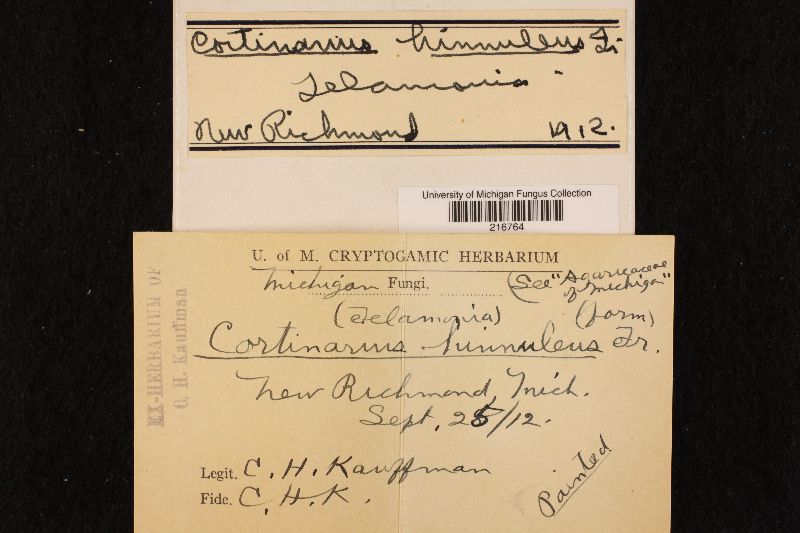 Cortinarius hinnuleus Fr.
Telamonia
New Richmond 1912.
University of Michigan Fungus Collection
216764
U. of M. CRYPTOGAMIC HERBARIUM
Michigan Fungi. (See "Agaricaceae of Michigan"
(Telamonia) (form)
Cortinarius hinnuleus Fr.
New Richmond, Mich.
Sept. 25/12.
Legit. C. H. Kauffman
Fide. C. H. K.
Painted
EX-HERBARIUM OF
C. H. Kauffman